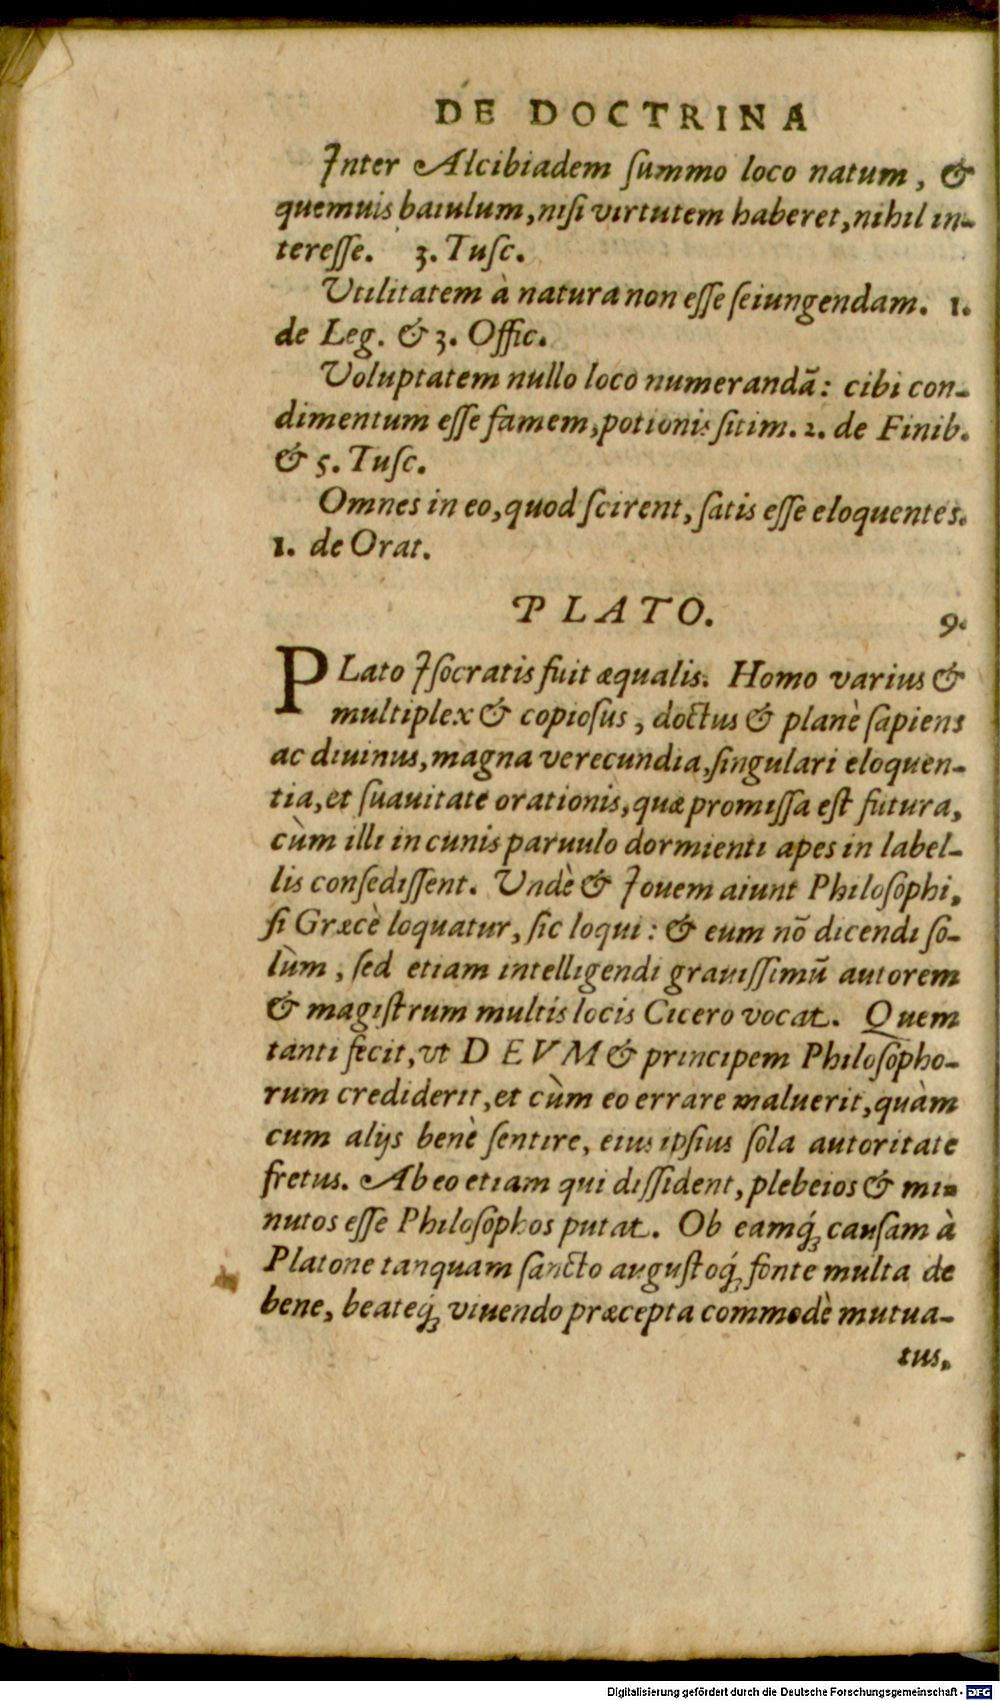 DE DOCTRINA
Inter Alcibiadem ſummo loco natum, &
quemuis baiulum, niſi virtutem haberet, nihil in-
tereſſe. 3. Tuſc.
Vtilitatem à natura non eſſe ſeiungendam. 1.
de Leg. & 3. Offic.
Voluptatem nullo loco numerandā: cibi con-
dimentum eſſe famem, potionis ſitim. 2. de Finib.
& 5. Tuſc.
Omnes in eo, quod ſcirent, ſatis eſſe eloquentes.
1. de Orat.
PLATO. 9.
PLato Iſocratis fuit æqualis. Homo varius &
multiplex & copioſus, doctus & planè ſapiens
ac diuinus, magna verecundia, ſingulari eloquen-
tia, et ſuauitate orationis, quæ promiſſa eſt futura,
cùm illi in cunis paruulo dormienti apes in label-
lis conſediſſent. Vndè & Iouem aiunt Philoſophi,
ſi Græcè loquatur, ſic loqui: & eum nō dicendi ſo-
lùm, ſed etiam intelligendi grauiſſimū autorem
& magiſtrum multis locis Cicero vocat. Quem
tanti fecit, vt DEVM & principem Philoſopho-
rum crediderit, et cùm eo errare maluerit, quàm
cum alijs benè ſentire, eius ipſius ſola autoritate
fretus. Ab eo etiam qui diſſident, plebeios & mi-
nutos eſſe Philoſophos putat. Ob eamq́ꝫ cauſam à
Platone tanquam ſancto auguſtoq́ꝫ fonte multa de
bene, beateq́ꝫ viuendo præcepta commodè mutua-
tus,
Digitalisierung gefördert durch die Deutsche Forschungsgemeinschaft - DFG